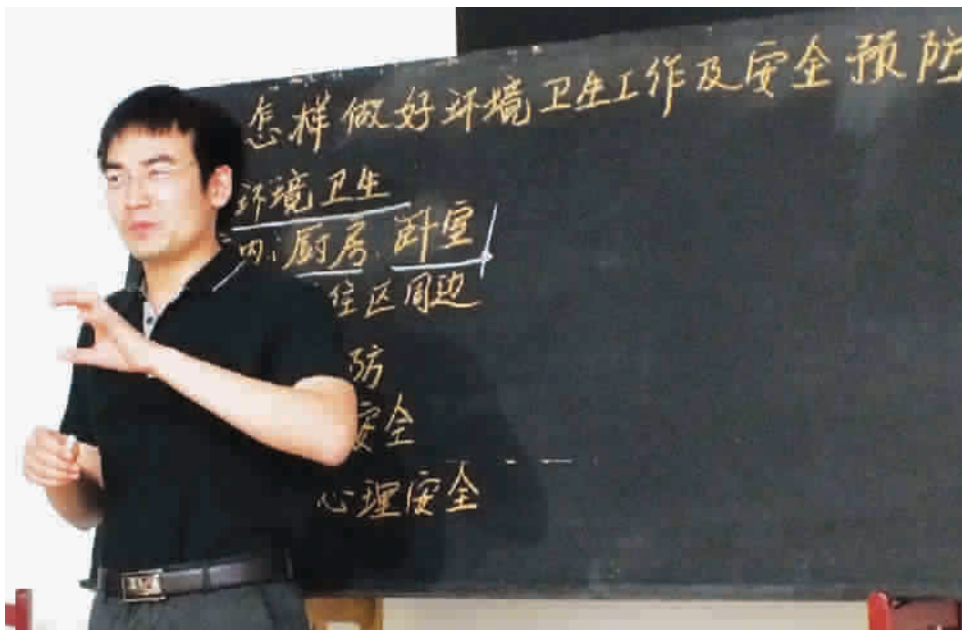 怎样做好环境卫生工作及安全预防
环境卫生
内:厨房、卧室
住区周边
防
安全
心理安全